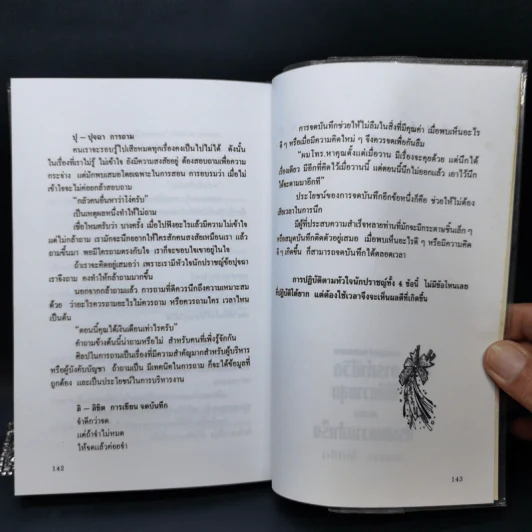 ปุ – ปุจฉา การถาม
คนเราจะรอบรู้ไปเสียหมดทุกเรื่องคงเป็นไปไม่ได้ ดังนั้น
ในเรื่องที่เราไม่รู้ ไม่เข้าใจ ยังมีความสงสัยอยู่ ต้องสอบถามเพื่อความ
กระจ่าง แต่มักพบเสมอโดยเฉพาะในการสอน การอบรมว่า เมื่อไม่
เข้าใจจะไม่ค่อยกล้าสอบถาม
"กลัวคนอื่นหาว่าโง่ครับ"
เป็นเหตุผลหนึ่งทำให้ไม่ถาม
เชื่อไหมครับว่า บางครั้ง เมื่อไปฟังอะไรแล้วมีความไม่เข้าใจ
แต่ไม่กล้าถาม เรามักจะนึกอยากให้ใครสักคนสงสัยเหมือนเรา แล้ว
ถามขึ้นมา พอมีใครถามตรงกับใจ เราก็จะขอบใจเขาอยู่ในใจ
ถ้าเราจะคิดอยู่เสมอว่า เพราะเรามีหัวใจนักปราชญ์ข้อปุจฉา
เราจึงถาม คงทำให้กล้าถามมากขึ้น
นอกจากกล้าถามแล้ว การถามที่ดีควรนึกถึงความเหมาะสม
ด้วย ว่าอะไรควรถามอะไรไม่ควรถาม หรือควรถามใคร เวลาไหน
เป็นต้น
"ตอนนี้คุณได้เงินเดือนเท่าไรครับ"
คำถามข้างต้นนี้น่าถามหรือไม่ สำหรับคนที่เพิ่งรู้จักกัน
ศิลปในการถามเป็นเรื่องที่มีความสำคัญมากสำหรับผู้บริหาร
หรือผู้บังคับบัญชา ถ้าถามเป็น มีเทคนิคในการถาม ก็จะได้ข้อมูลที่
ถูกต้อง และเป็นประโยชน์ในการบริหารงาน
ลิ – ลิขิต การเขียน จดบันทึก
จำดีกว่าจด
แต่ถ้าจำไม่หมด
ให้จดแล้วค่อยจำ
142
การจดบันทึกช่วยให้ไม่ลืมในสิ่งที่มีคุณค่า เมื่อพบเห็นอะไร
ดี ๆ หรือเมื่อมีความคิดใหม่ ๆ จึงควรจดเพื่อกันลืม
"ผมโทร.หาคุณตั้งแต่เมื่อวาน มีเรื่องจะคุยด้วย แต่นึกได้
เรื่องเดียว มีอีกที่คิดไว้เมื่อวานนี้ แต่ตอนนี้นึกไม่ออกแล้ว เอาไว้นึก
ได้จะตามมาอีกที"
ประโยชน์ของการจดบันทึกอีกข้อหนึ่งก็คือ ช่วยให้ไม่ต้อง
เสียเวลาในการนึก
มีผู้ที่ประสบความสำเร็จหลายท่านที่มักจะมีกระดาษชิ้นเล็ก ๆ
หรือสมุดบันทึกติดตัวอยู่เสมอ เมื่อพบเห็นอะไรดี ๆ หรือมีความคิด
ดี ๆ เกิดขึ้น ก็สามารถจดบันทึกได้ตลอดเวลา
การปฏิบัติตามหัวใจนักปราชญ์ทั้ง 4 ข้อนี้ ไม่มีข้อไหนเลย
ที่ปฏิบัติได้ยาก แต่ต้องใช้เวลาจึงจะเห็นผลดีที่เกิดขึ้น
143